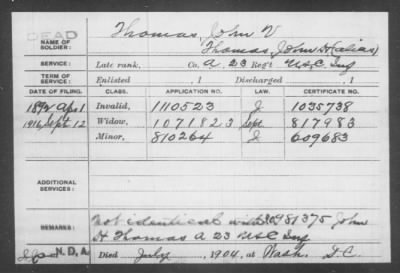 DEAD
NAME OF SOLDIER: Thomas, John V
Thomas, John H (alias)
SERVICE: Late rank, Co. A 23 Reg't U.S.C. Inf
TERM OF SERVICE: Enlisted , 1 Discharged , 1
DATE OF FILING. CLASS. APPLICATION NO. LAW. CERTIFICATE NO.
1892 Apl 1 Invalid, 1110523 J 1035738
1916, Sept 12 Widow, 1071823 Sept 817983
Minor, 810264 J 609683
ADDITIONAL SERVICES:
REMARKS: Not identical with 981375 John
H Thomas A 23 USC Inf
N.D.A. Died July , 1904, at Wash. D.C.